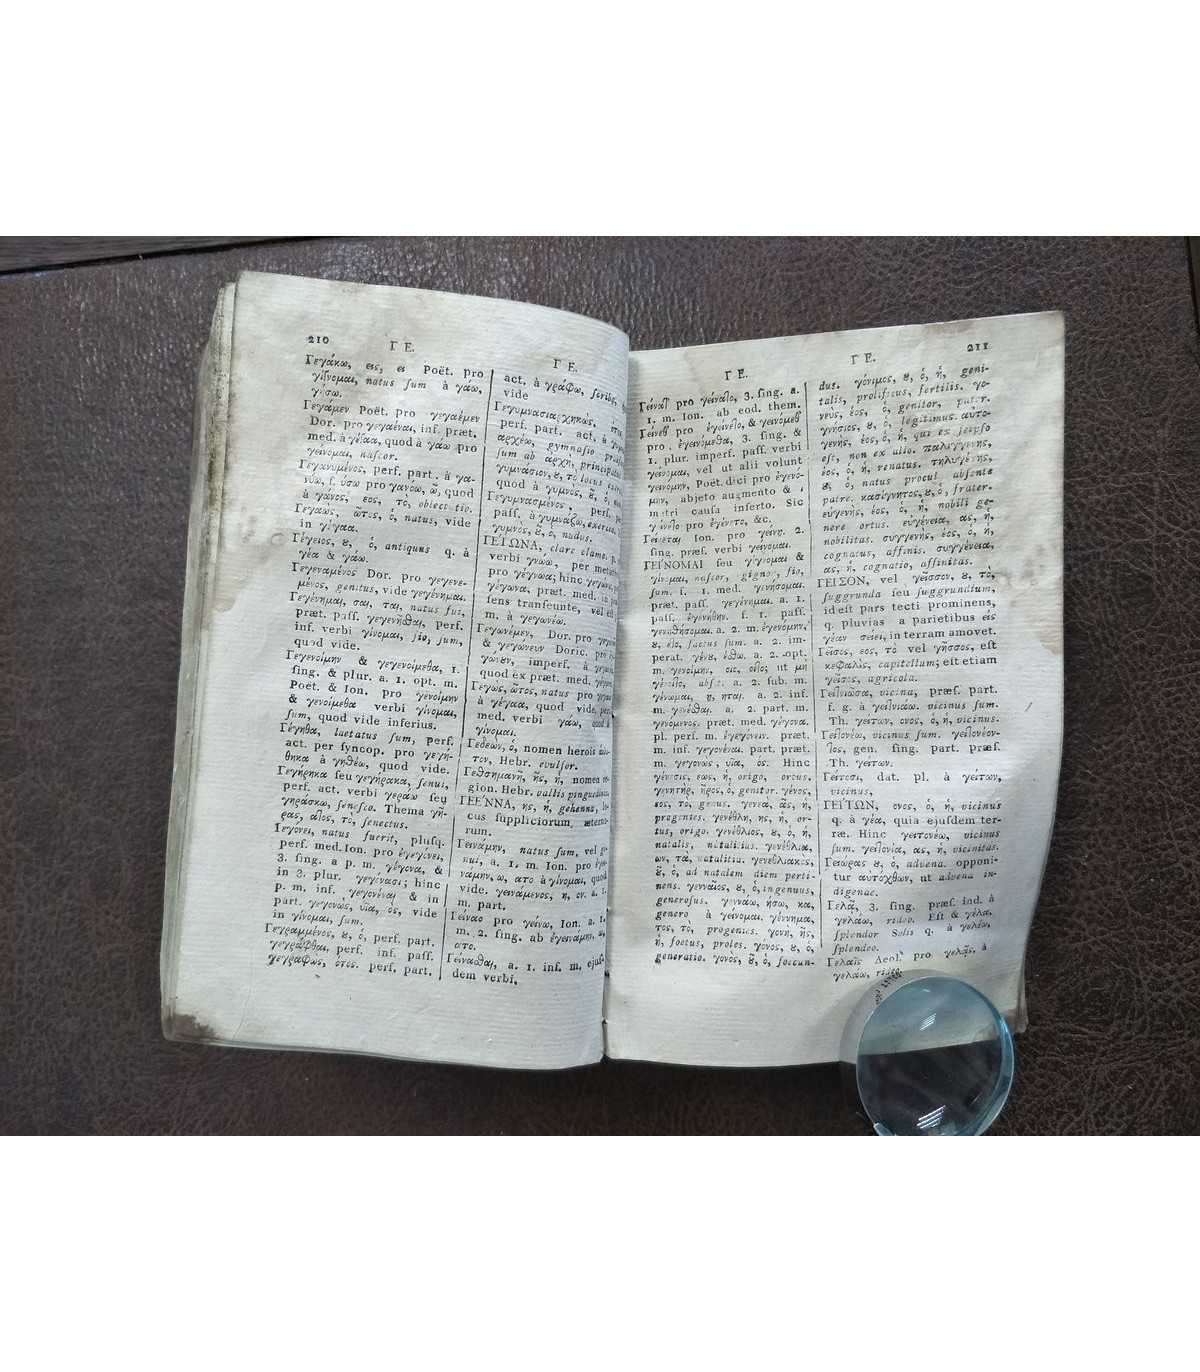 210
Γ Ε.
Γεγάκω, εις, ει Poët. pro
γίνομαι, natus ſum à γάω,
γήσω.
Γεγάμεν Poët. pro γεγαέμεν
Dor. pro γεγαέναι, inf. præt.
med. à γέγαα, quod à γάω pro
γείνομαι, naſcor.
Γεγανυμένος, perf. part. à γα-
νύω, f. ύσω pro γανόω, ῶ, quod
à γάνος, εος, τὸ, oblectatio.
Γεγαὼς, ῶτος, ὁ, natus, vide
in γέγαα.
Γέγειος, ȣ, ὁ, antiquus q. à
γέα & γάω.
Γεγεναμένος Dor. pro γεγενε-
μένος, genitus, vide γεγένημαι.
Γεγένημαι, σαι, ται, natus ſus,
præt. paſſ. γεγενῆσθαι, perf.
inf. verbi γίνομαι, fio, ſum,
quod vide.
Γεγενοίμην & γεγενοίμεθα, 1.
ſing. & plur. a. 1. opt. m.
Poët. & Ion. pro γενοίμην
& γενοίμεθα verbi γίνομαι,
ſum, quod vide inferius.
Γέγηθα, laetatus ſum, perf.
act. per ſyncop. pro γεγή-
θηκα à γηθέω, quod vide.
Γεγήρηκα ſeu γεγήρακα, ſenui,
perf. act. verbi γεράω ſeu
γηράσκω, ſeneſco. Thema γῆ-
ρας, ατος, τὸ, ſenectus.
Γεγόνει, natus fuerit, pluſq.
perf. med. Ion. pro ἐγεγόνει,
3. ſing. a p. m. γέγονα, &
in 3. plur. γεγόνασι; hinc
p. m. inf. γεγονέναι & in
part. γεγονὼς, υῖα, ὸς, vide
in γίνομαι, ſum.
Γεγραμμένος, ȣ, ὁ, perf. part.
γεγράφθαι, perf. inf. paſſ.
γεγραφὼς, ότος. perf. part.
Γ Ε.
act. à γράφω, ſcribo,
vide
Γεγυμνασιαρχηκὼς,
perf. part. act. à
αρχέω, gymnaſio
ſum ab ἀρχὴ,
γυμνάσιον, ȣ, τὸ locus
quod à γυμνὸς, ȣ, ὁ,
Γεγυμνασμένος, perf.
paſſ. à γυμνάζω, exerceo,
γυμνὸς, ȣ, ὁ, nudus.
ΓΕΓΩΝΑ, clare clamo. p.
verbi γνώω, per metath.
pro γέγνωα; hinc γεγωνὼ,
γέγωνα, præt. med. in præ-
ſens tranſeunte, vel eſt
m. à γεγωνέω.
Γεγωνέμεν, Dor. pro
& γεγώνευν Doric. pro
γώνεν, imperf. à
quod ex præt. med.
Γεγὼς, ῶτος, natus pro
à γέγαα, quod vide,
med. verbi γάω, quod à
γίνομαι.
Γεδεὼν, ὁ, nomen herois
τον, Hebr. evulſor.
Γεθσημανῆ, ῆς, ἡ, nomen re-
gion. Hebr. vallis pinguedinis.
ΓΕΕΝΝΑ, ης, ἡ, gehenna, lo-
cus ſuppliciorum æterno-
rum.
Γεινάμην, natus ſum, vel g-
nui, a. 1. m. Ion. pro ἐγει-
νάμην, ω, ατο à γίνομαι, quod
vide. γεινάμενος, η, ον. a. 1.
m. part.
Γείναο pro γείνω, Ion. a. 1.
m. 2. ſing. ab ἐγεινάμην, ω,
ατο.
Γείνασθαι, a. 1. inf. m. ejuſ-
dem verbi.
211
Γ Ε.
Γείνατ' pro γείνατο, 3. ſing. a.
1. m. Ion. ab eod. them.
Γείνεθ' pro ἐγείνετο, & γεινόμεθ'
pro ἐγεινόμεθα, 3. ſing. &
1. plur. imperf. paſſ. verbi
γείνομαι, vel ut alii volunt
γεινόμην, Poët. dici pro ἐγενό-
μην, abjeto augmento & ι
metri cauſa inſerto. Sic
γείνετο pro ἐγένετο, &c.
Γείνεται Ion. pro γείνῃ. 2.
ſing. præſ. verbi γείνομαι.
ΓΕΙΝΟΜΑΙ ſeu γίγνομαι &
γίνομαι, naſcor, gignor, fio,
ſum. f. 1. med. γενήσομαι.
præt. paſſ. γεγένημαι. a. 1.
paſſ. ἐγενήθην. f. 1. paſſ.
γενηθήσομαι. a. 2. m. ἐγενόμην,
ȣ, ετο, factus ſum. a. 2. im-
perat. γένȣ, έσθω. a. 2. opt.
m. γενοίμην, οιο, οιτο; ut μὴ
γένοιτο, abſit. a. 2. ſub. m.
γένωμαι, ῃ, ηται. a. 2. inf.
m. γενέσθαι. a. 2. part. m.
γενόμενος. præt. med. γέγονα.
pl. perf. m. ἐγεγόνειν. præt.
m. inf. γεγονέναι. part. præt.
m. γεγονὼς, υῖα, ὸς. Hinc
γένεσις, εως, ἡ, origo, ortus.
γενητὴρ, ῆρος, ὁ, genitor. γένος,
εος, τὸ, genus. γενεὰ, ᾶς, ἡ,
progenies. γενέθλη, ης, ἡ, or-
tus, origo. γενέθλιος, ȣ, ὁ, ἡ,
natalis, natalitius. γενέθλια,
ων, τὰ, natalitia. γενεθλιακὸς,
ȣ, ὁ, ad natalem diem perti-
nens. γενναῖος, ȣ, ὁ, ingenuus,
generoſus. γεννάω, ήσω, κα,
genero à γείνομαι. γέννημα,
τος, τὸ, progenies. γονὴ, ῆς,
ἡ, foetus, proles. γόνος, ȣ, ὁ,
generatio. γονὸς, ȣ͂, ὁ, foecun-
Γ Ε.
dus. γόνιμος, ȣ, ὁ, ἡ, geni-
talis, prolificus, fertilis. γο-
νεὺς, έος, ὁ, genitor, pater.
γνήσιος, ȣ, ὁ, legitimus. αὐτο-
γενὴς, έος, ὁ, ἡ, qui ex ſeipſo
eſt, non ex alio. παλιγγενὴς,
έος, ὁ, ἡ, renatus. τηλυγένης,
ȣ, ὁ, natus procul abſente
patre. κασίγνητος, ȣ, ὁ, frater.
εὐγενὴς, έος, ὁ, ἡ, nobili ge-
nere ortus. εὐγένεια, ας, ἡ,
nobilitas. συγγενὴς, έος, ὁ, ἡ,
cognatus, affinis. συγγένεια,
ας, ἡ, cognatio, affinitas.
ΓΕΙΣΟΝ, vel γεῖσσον, ȣ, τὸ,
ſuggrunda ſeu ſuggrundium,
id eſt pars tecti prominens,
q. pluvias a parietibus εἰς
γέαν σείει, in terram amovet.
Γεῖσος, εος, τὸ vel γῆσσος, eſt
κεφαλὶς, capitellum; eſt etiam
γεῖσος, agricola.
Γειτνιῶσα, vicina, præſ. part.
f. g. à γειτνιάω. vicinus ſum.
Th. γείτων, ονος, ὁ, ἡ, vicinus.
Γειτονέω, vicinus ſum. γειτονέον-
τος, gen. ſing. part. præſ.
Th. γείτων.
Γείτοσι, dat. pl. à γείτων,
vicinus.
ΓΕΙΤΩΝ, ονος, ὁ, ἡ, vicinus
q. à γέα, quia ejuſdem ter-
ræ. Hinc γειτονέω, vicinus
ſum. γειτονία, ας, ἡ, vicinitas.
Γειώρας ȣ, ὁ, advena. opponi-
tur αὐτόχθων, ut advena in-
digenae.
Γελᾷ, 3. ſing. præſ. ind. à
γελάω, rideo. Eſt & γέλα,
ſplendor Solis q. à γελέω,
ſplendeo.
Γελαῖς Aeol. pro γελᾷς, à
γελάω, rideo.